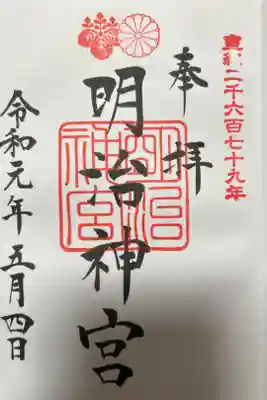 皇紀二千六百七十九年
奉拝
明治神宮
明治神宮
令和元年五月四日